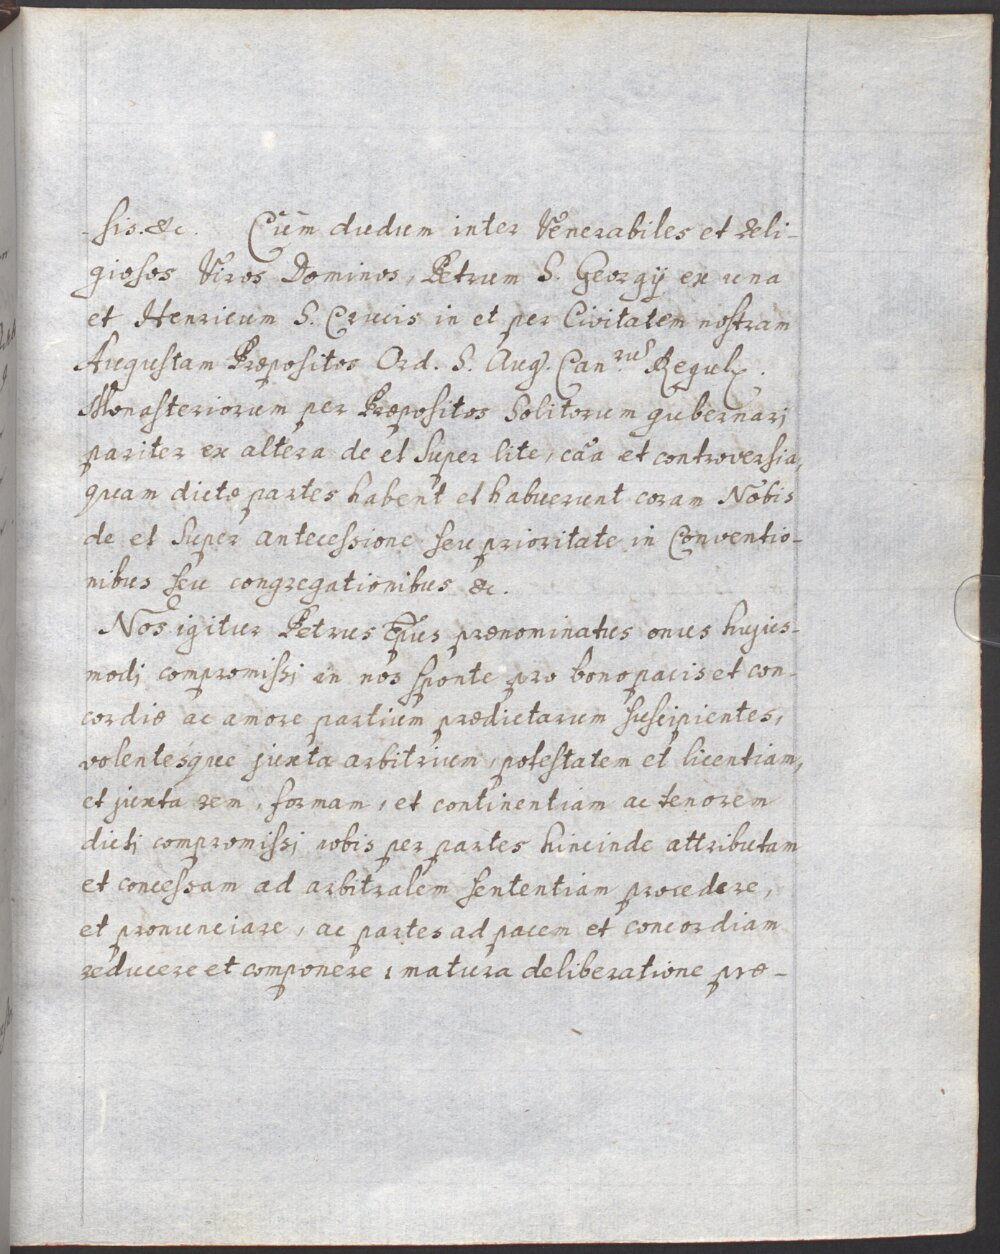 -sis. &c. Cùm dudum inter Venerabiles et Reli-
giosos Viros Dominos, Petrum S. Georgÿ ex una
et Henricum S. Crucis in et per Civitatem nostram
Augustam Præpositos Ord. S. Aug. Can.rum Regul.
Monasteriorum per Præpositos solitorum gubernarj
pariter ex altera de et super lite, cãa et controversia,
quam dictæ partes habent et habuerunt coram Nobis
de et super antecessione seu prioritate in Conventio-
nibus seu congregationibus &c.
Nos igitur Petrus Epũs prænominatus onus hujus-
modj compromissj in nos sponte pro bono pacis et con-
cordiæ ac amore partium prædictarum suscipientes,
volentesque juxta arbitrium, potestatem et licentiam,
et juxta rem, formam, et continentiam ac tenorem
dictj compromissj nobis per partes hincinde attributam
et concessam ad arbitralem sententiam procedere,
et pronunciare, ac partes ad pacem et concordiam
reducere et componere, matura deliberatione præ-